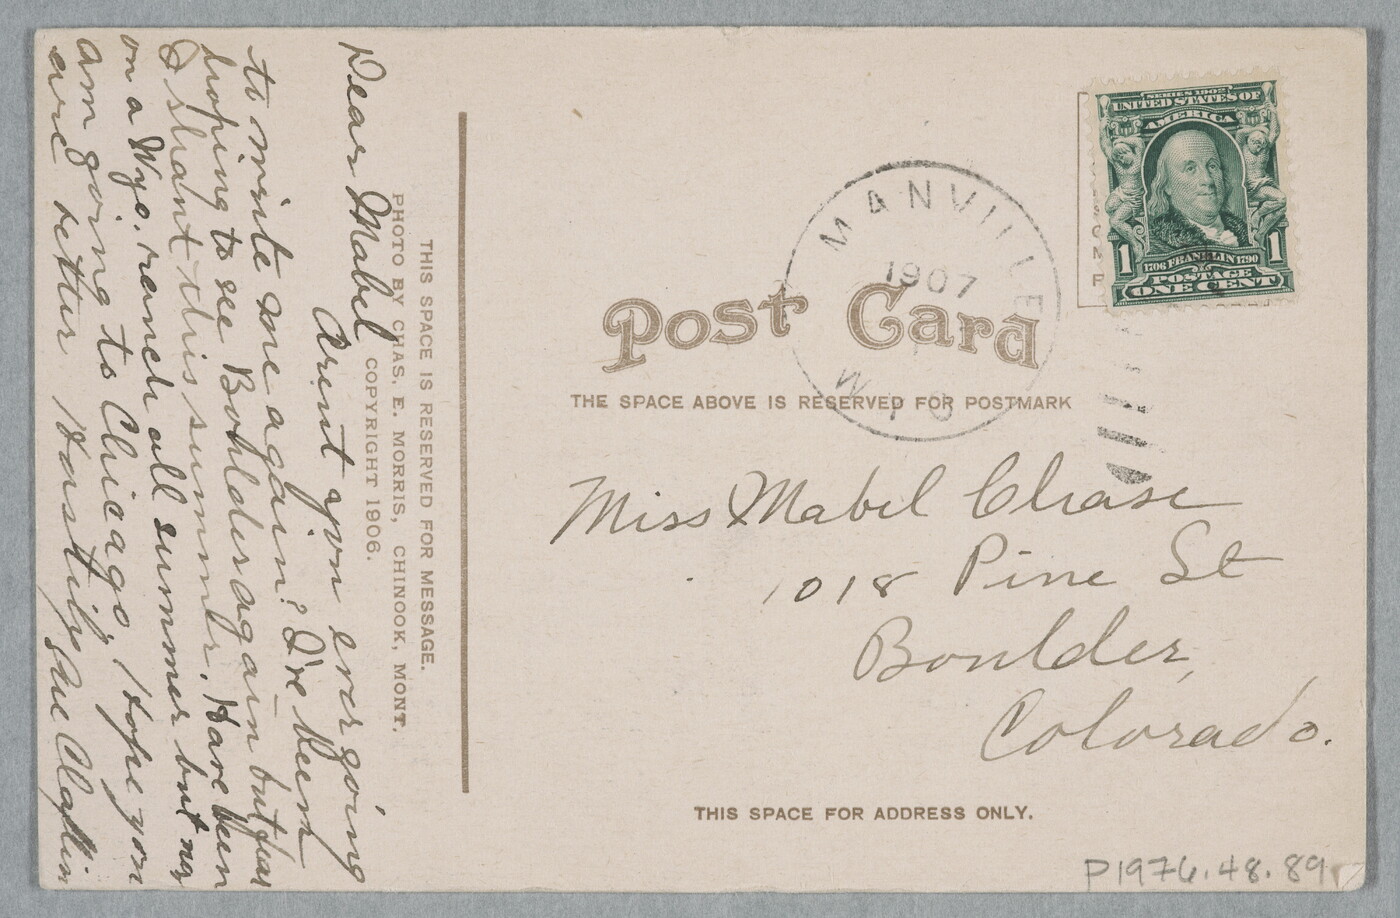 Dear Mabel
Arent you ever going
to write me again? I've been
hoping to see Bohlder again but fear
I shant this summer. Have been
on a Wyo. ranch all summer but now
am going to Chicago. Hope you
are better Hastily
THIS SPACE IS RESERVED FOR MESSAGE.
PHOTO BY CHAS. E. MORRIS, CHINOOK, MONT.
COPYRIGHT 1906.
SERIES 1902
UNITED STATES OF
AMERICA
1 1
1706 FRANKLIN 1790
POSTAGE
ONE CENT
MANVILLE
1907
WYO
Post Card
THE SPACE ABOVE IS RESERVED FOR POSTMARK
Miss Mabel Chase
1018 Pine St
Boulder,
Colorado.
THIS SPACE FOR ADDRESS ONLY.
P1976.48.89